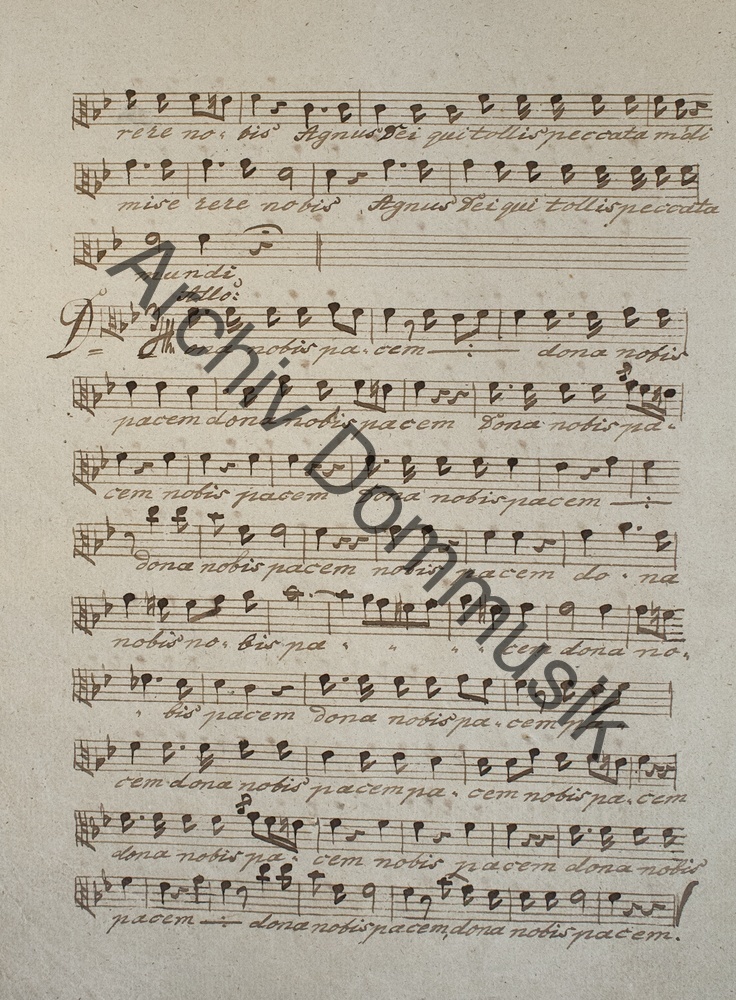 rere no - bis Agnus Dei qui tollis peccata mũdi
mise rere nobis Agnus Dei qui tollis peccata
mundi
Allo:
Dona nobis pa - cem dona nobis
pacem dona nobis pacem Dona nobis pa -
cem nobis pacem Dona nobis pacem
dona nobis pacem nobis pacem do - na
nobis no - bis pa - - - - cem dona no -
- bis pacem Dona nobis pa - cem pa -
cem dona nobis pacem pa - cem nobis pa - cem
dona nobis pa - cem nobis pacem dona nobis
pacem dona nobis pacem, dona nobis pacem.
Archiv Dommusik